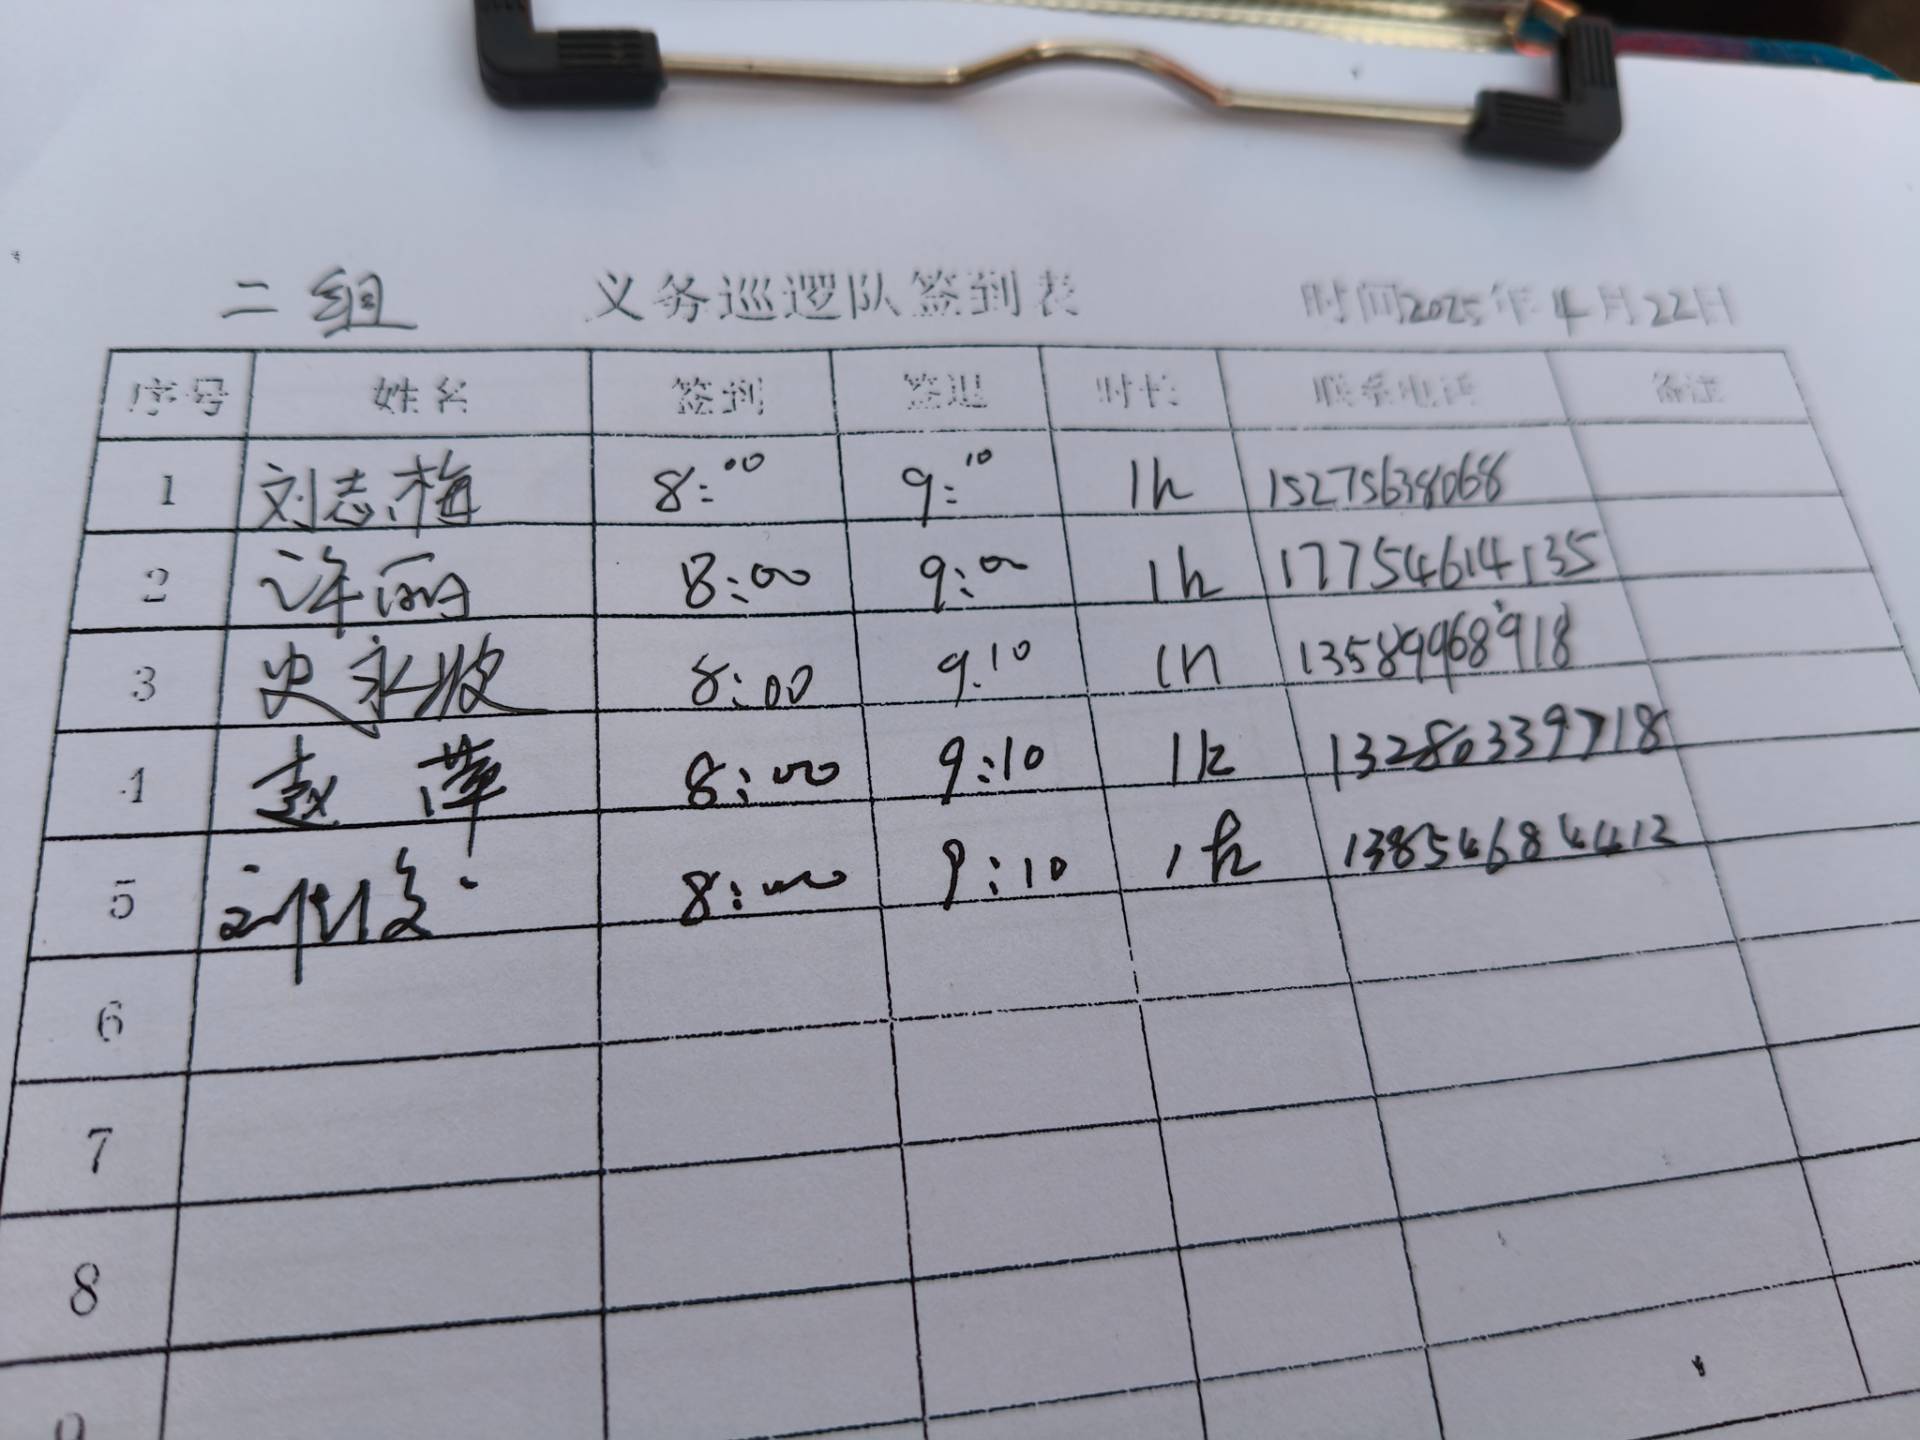 二组 义务巡逻队签到表 时间2025年4月22日
序号 姓名 签到 签退 时长 联系电话 备注
1 刘志梅 8:00 9:10 1h 15275638068
2 许丽 8:00 9:00 1h 17754614135
3 史永波 8:00 9:10 1h 13589968918
4 赵萍 8:00 9:10 1h 13280339718
5 8:00 9:10 1h 13854684412
6
7
8